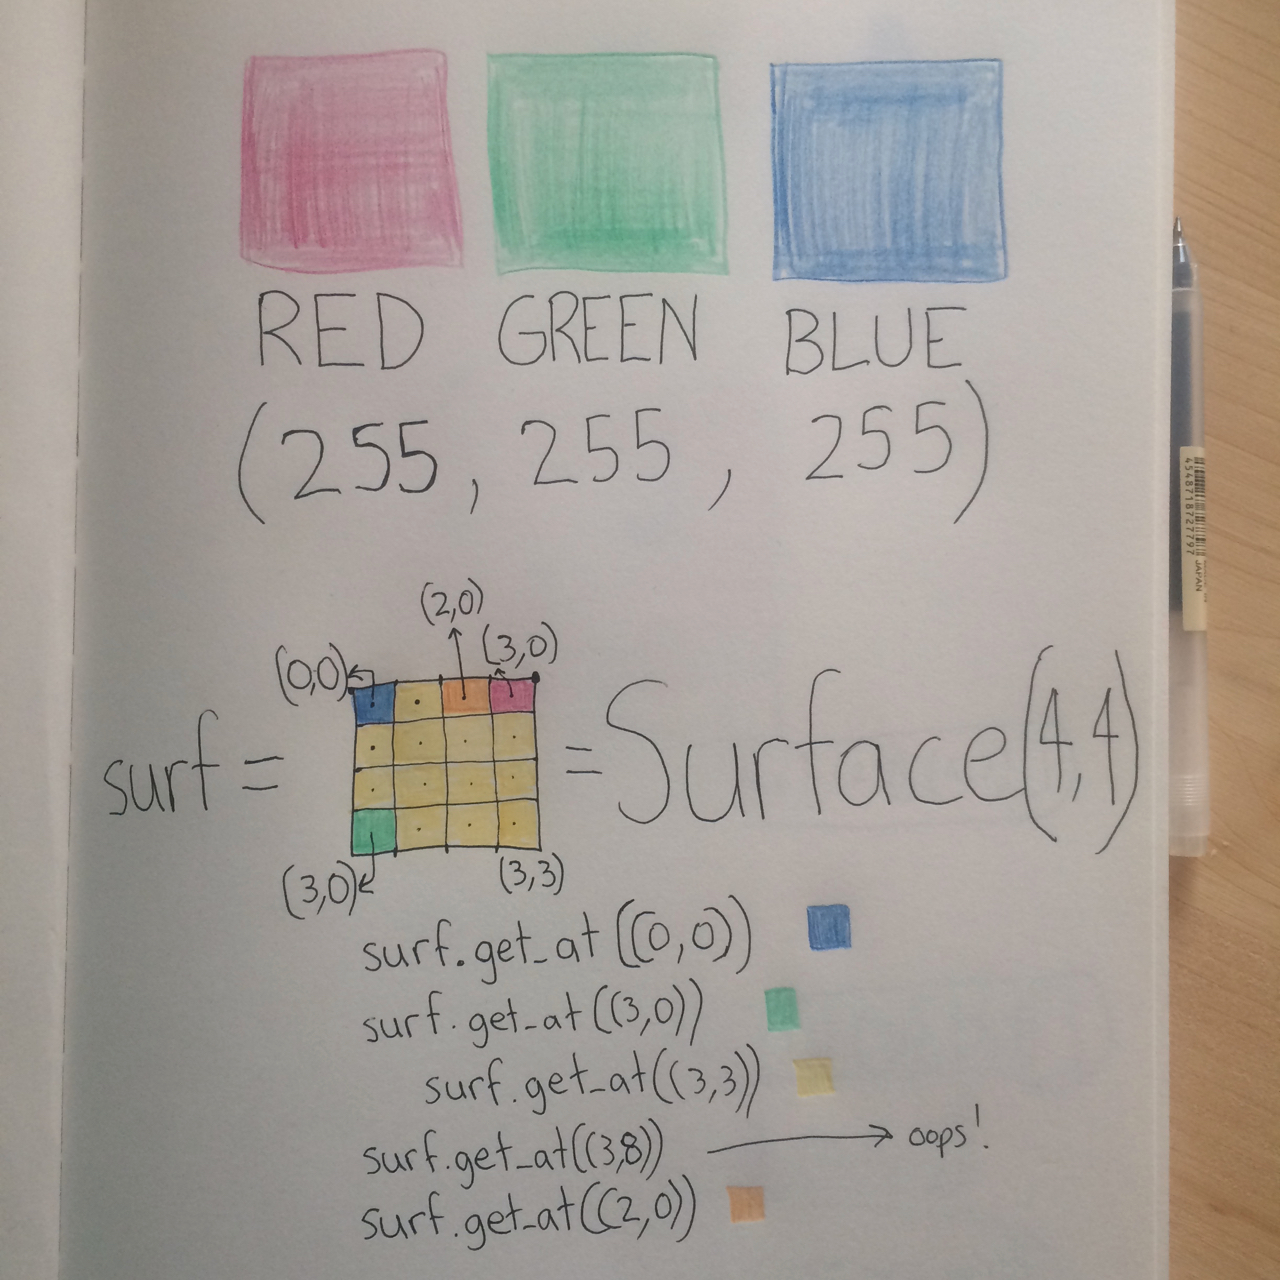 RED GREEN BLUE
(255, 255, 255)
(2,0)
(0,0) (3,0)
surf = = Surface(4,4)
(3,0) (3,3)
surf.get_at((0,0))
surf.get_at((3,0))
surf.get_at((3,3))
surf.get_at((3,8)) → oops!
surf.get_at((2,0))
4548718727797
JAPAN